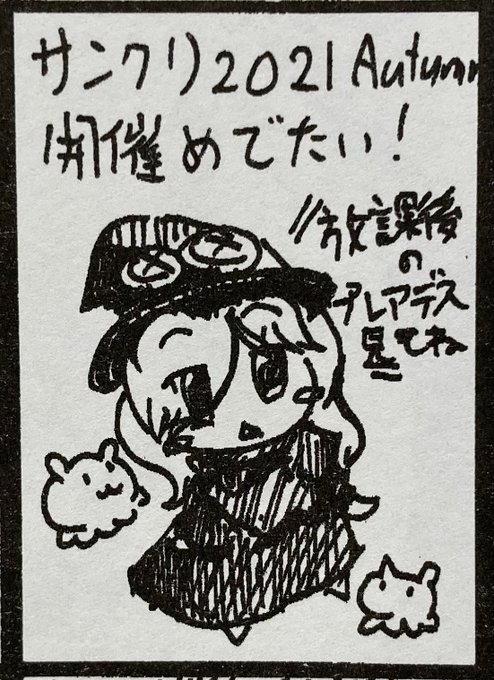 サンクリ2021 Autumn
開催めでたい!
放課後
の
プレアデス
見てね